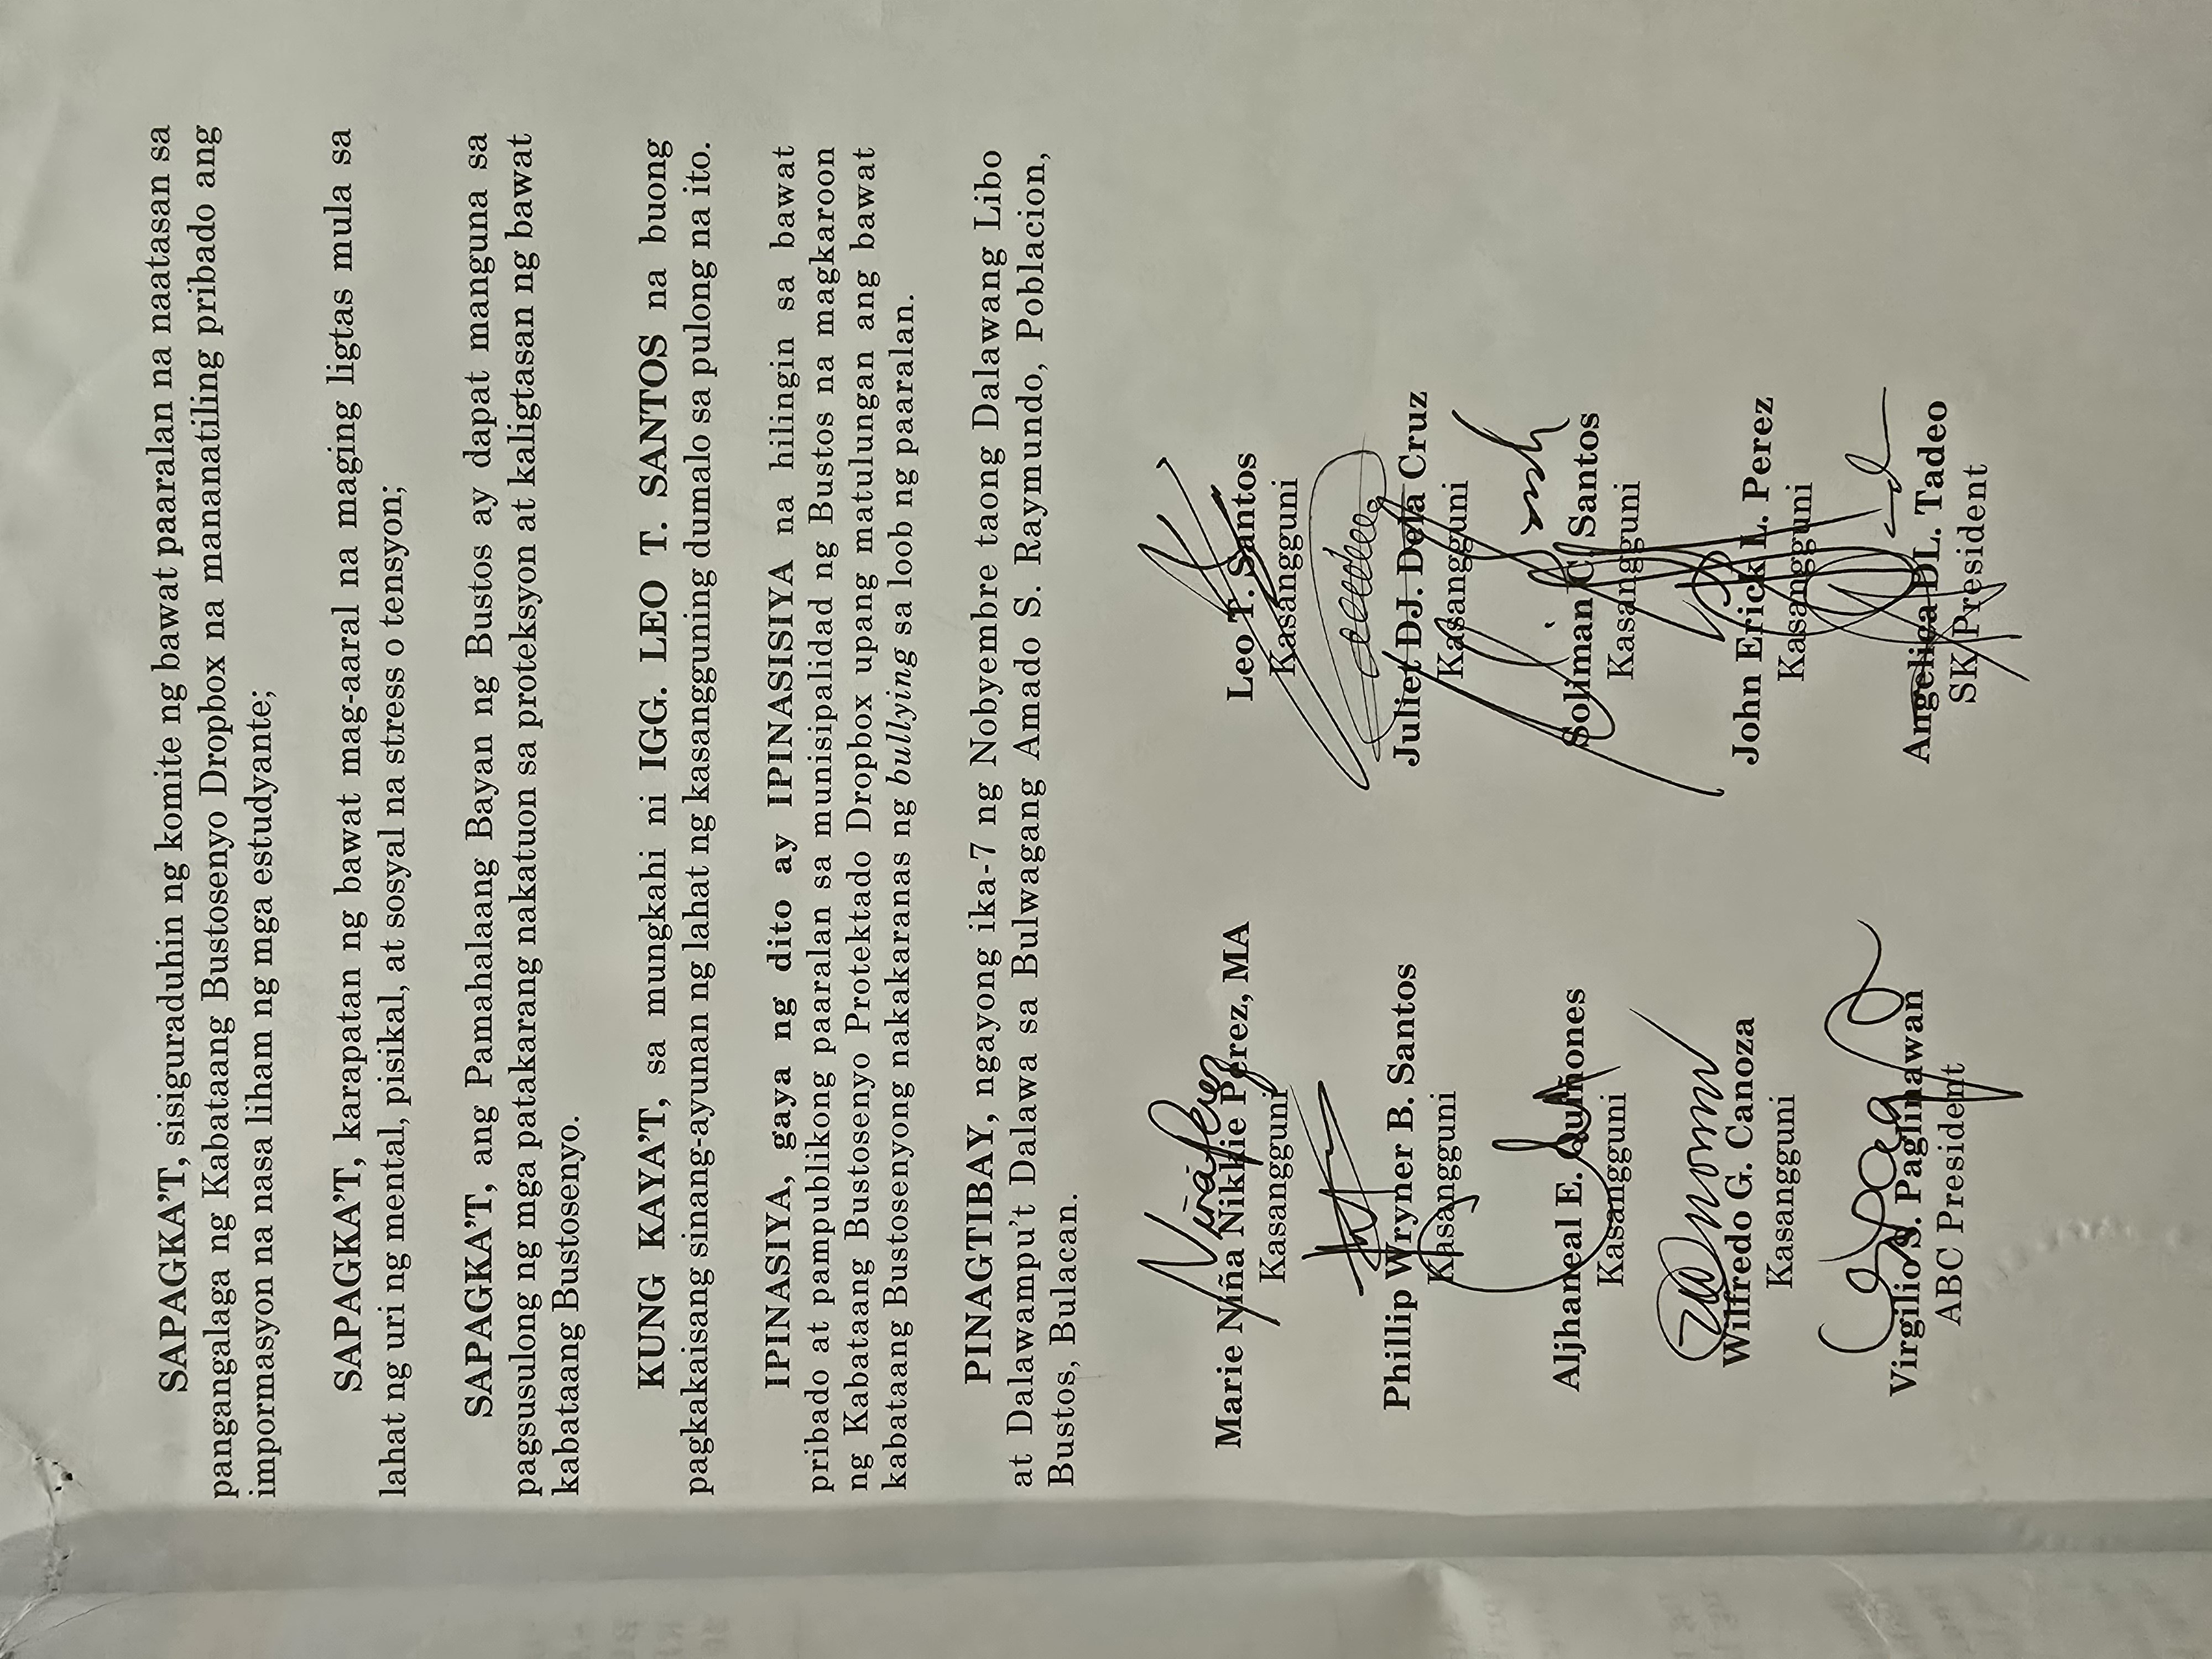 SAPAGKA’T, sisiguraduhin ng komite ng bawat paaralan na naatasan sa
pangangalaga ng Kabataang Bustosenyo Dropbox na mananatiling pribado ang
impormasyon na nasa liham ng mga estudyante;
SAPAGKA’T, karapatan ng bawat mag-aaral na maging ligtas mula sa
lahat ng uri ng mental, pisikal, at sosyal na stress o tensyon;
SAPAGKA’T, ang Pamahalaang Bayan ng Bustos ay dapat manguna sa
pagsusulong ng mga patakarang nakatuon sa proteksyon at kaligtasan ng bawat
kabataang Bustosenyo.
KUNG KAYA’T, sa mungkahi ni IGG. LEO T. SANTOS na buong
pagkakaisang sinang-ayunan ng lahat ng kasangguning dumalo sa pulong na ito.
IPINASIYA, gaya ng dito ay IPINASISIYA na hilingin sa bawat
pribado at pampublikong paaralan sa munisipalidad ng Bustos na magkaroon
ng Kabataang Bustosenyo Protektado Dropbox upang matulungan ang bawat
kabataang Bustosenyong nakakaranas ng bullying sa loob ng paaralan.
PINAGTIBAY, ngayong ika-7 ng Nobyembre taong Dalawang Libo
at Dalawampu’t Dalawa sa Bulwagang Amado S. Raymundo, Poblacion,
Bustos, Bulacan.
Marie Niña Nikkie Perez, MA
Kasangguni
Leo T. Santos
Kasangguni
Phillip Wryner B. Santos
Kasangguni
Juliet DJ. Dela Cruz
Kasangguni
Aljhaneal E. Quiñones
Kasangguni
Soliman C. Santos
Kasangguni
Wilfredo G. Canoza
Kasangguni
John Erick L. Perez
Kasangguni
Virgilio S. Paglinawan
ABC President
Angelica DL. Tadeo
SK President